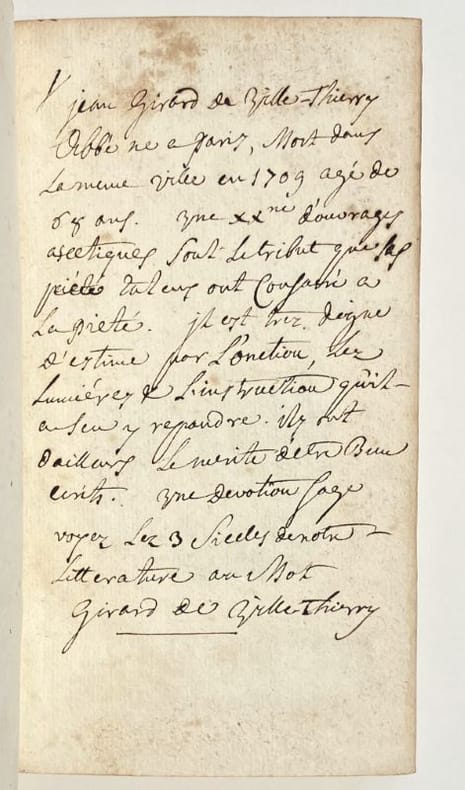 jean Girard de Ville-Thierry
Abbé ne a paris, Mort dans
La meme ville en 1709 agé de
68 ans. une xxne d'ouvrages
ascetiques sont Le tribut que ses
talens ont Consacré a
La pieté. jl est trez digne
d'estime par L'onction, Lez
Lumiérez & L'instruction qu'il
a Seu y repandre. ilz ont
dailleurs Le merite detre Bien
ecrits. une devotion sage
voyez Lez 3 Siecles de notre
Litterature au Mot
Girard de Ville-Thierry